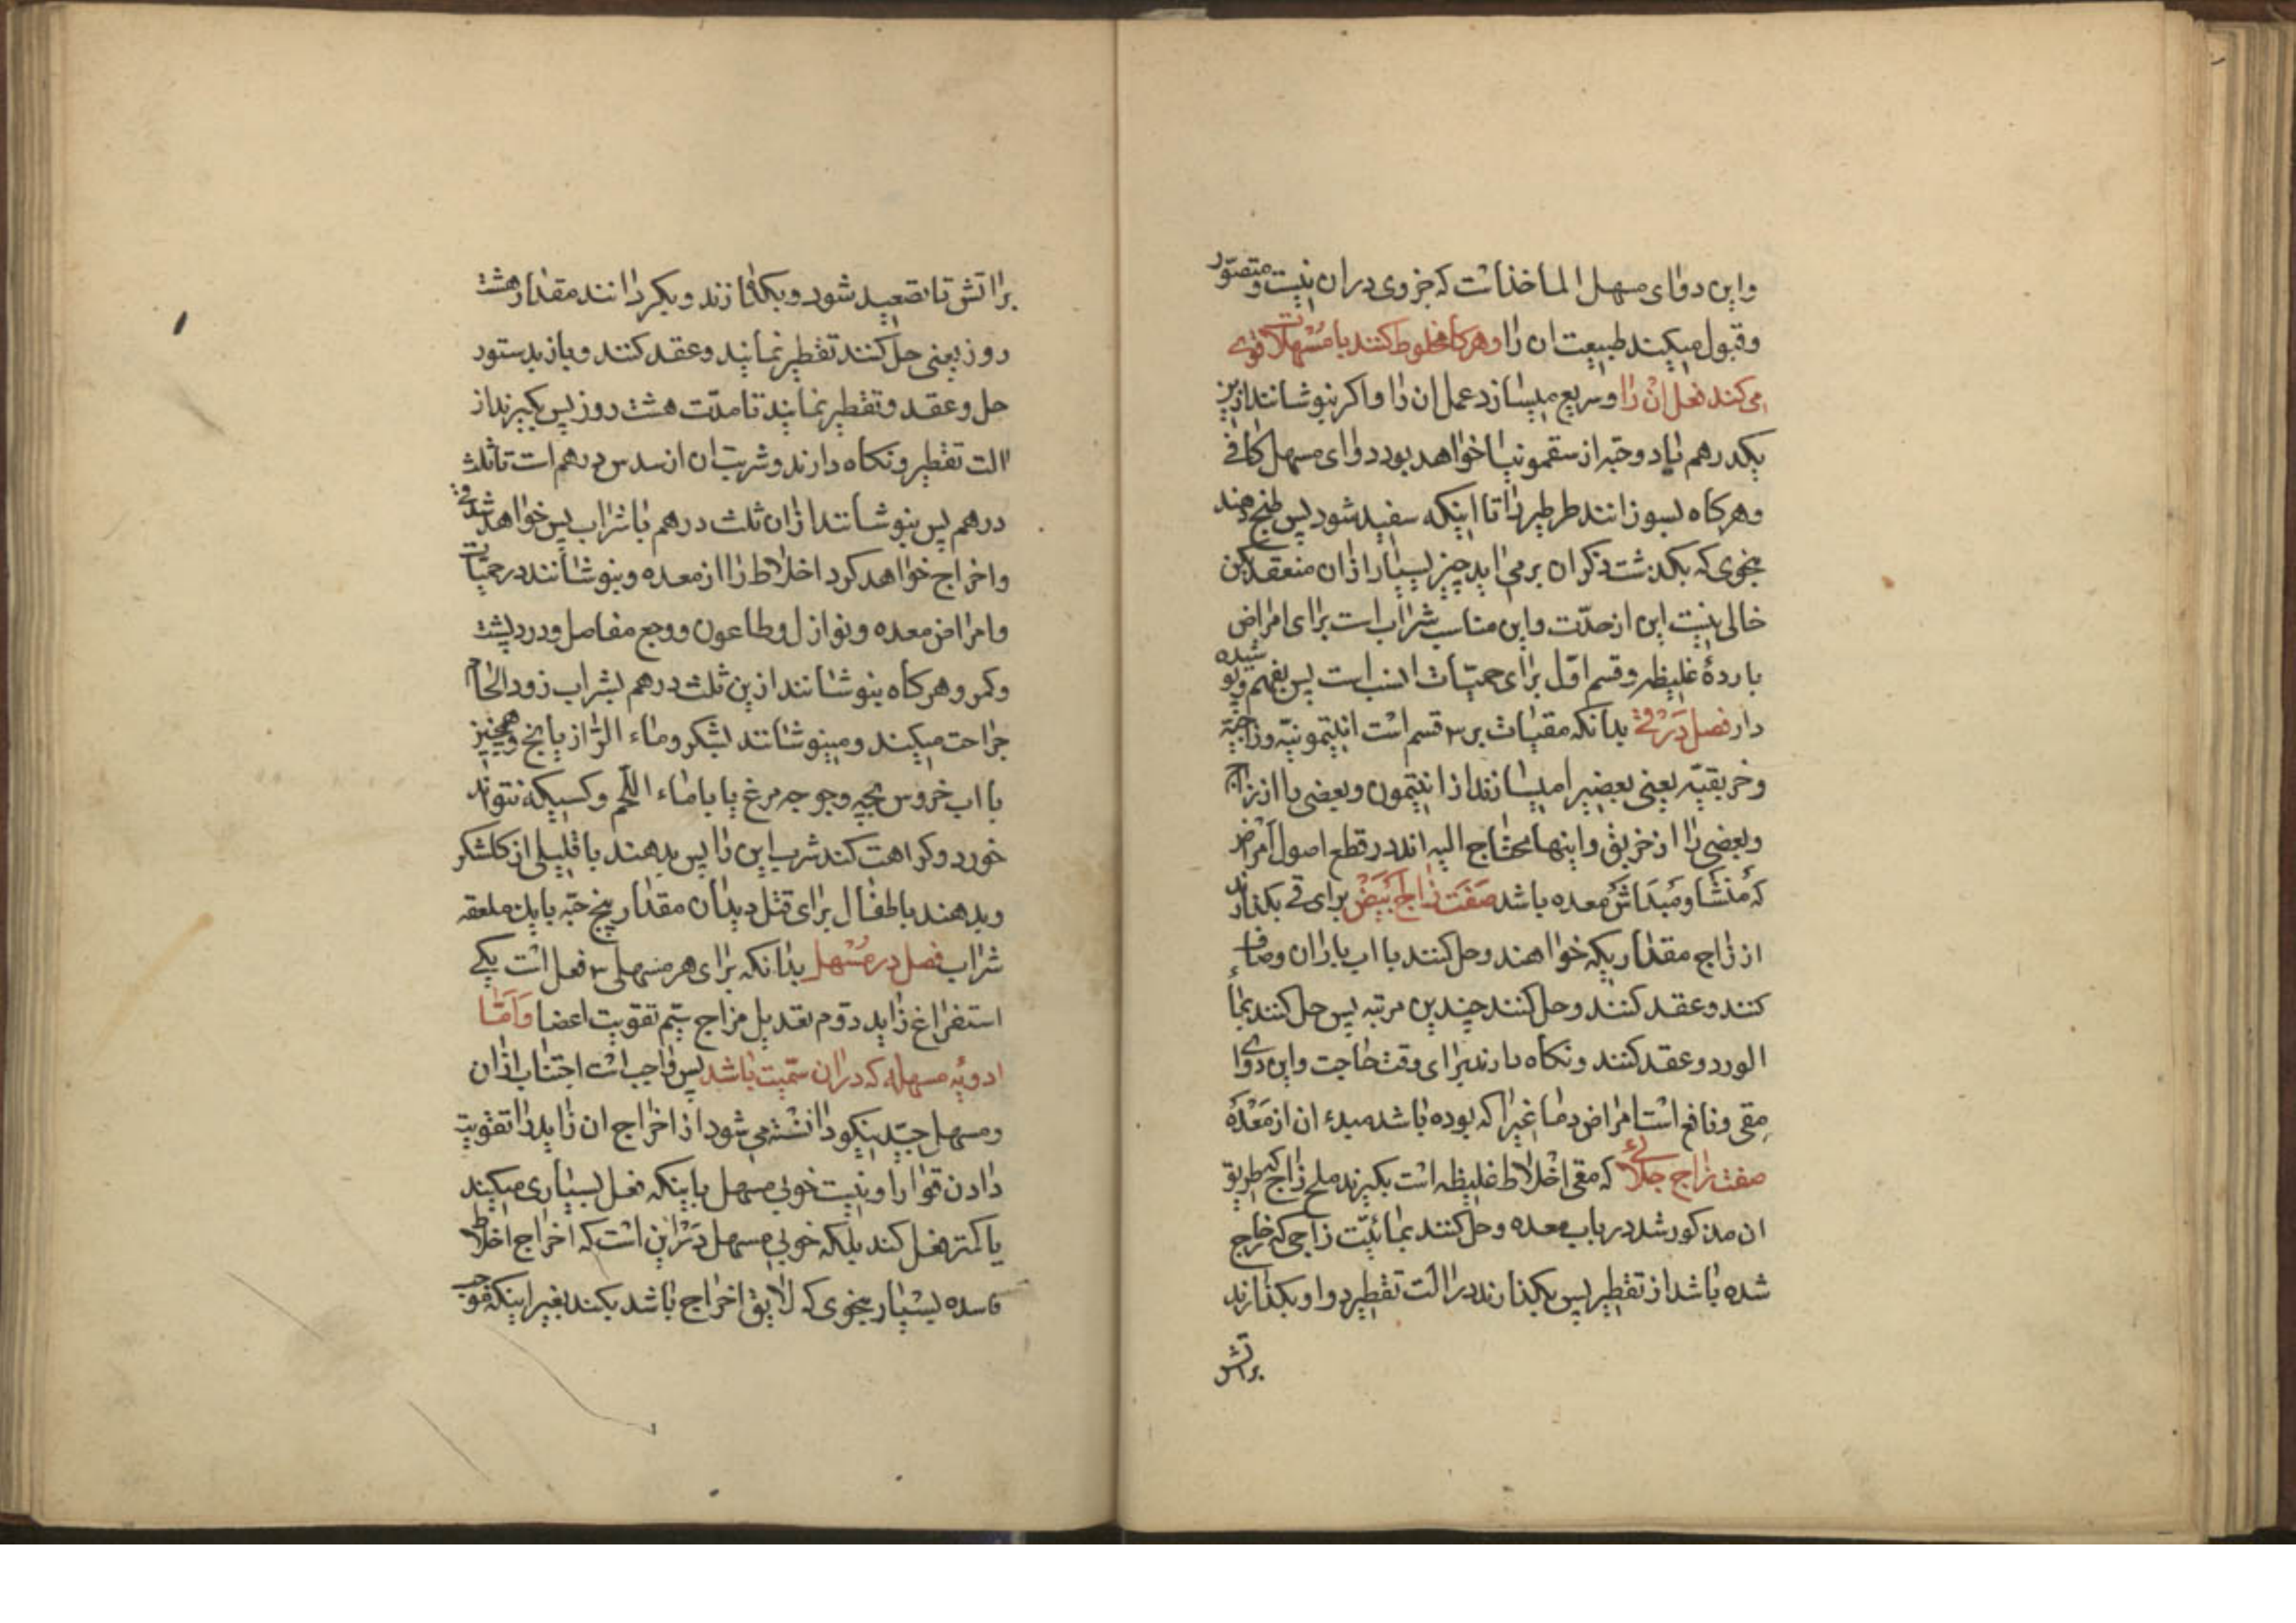 واین دوای مسهل الماخذات که جزوی دران نیست و متصوّر
وقبول میکند طبیعت ان را وهرکاه مخلوط کنند با مسهلات قوی
می کند فعل ان را و سریع میسازد عمل ان را واکر بنوشانند ازین
یکدرهم با دوحبّه از سقمونیا خواهد بود دوای مسهل کافی
وهرکاه بسوزانند طرطیر را تا اینکه سفید شود پس طبخ دهند
بنحوی که بکدشت ذکر ان برمی اید چیز بسیار ازان منعقد لکن
خالی نیست این از حدّت واین مناسب شراب است برای امراض
باردهٔ غلیظه وقسم اوّل برای حمیّات انسب است پس بفهم وپوشیده
دار فصل در قی بدانکه مقیات بر ۳ قسم است انتیمونیّه وزاجیّه
وخربقیّه یعنی بعضیرا میسازند از انتیمون وبعضی را از زاج
وبعضی را از خربق واینها محتاج الیه اند در قطع اصول امراض
که منشا ومبداش معده باشد صفت زاج ابیض برای قی بکذارند
از زاج مقداریکه خواهند وحل کنند با اب باران وصاف
کنند وعقد کنند وحل کنند چندین مرتبه پس حل کنند بماء
الورد وعقد کنند ونکاه دارند برای وقت حاجت واین دوای
مقی ونافع است امراض دماغیرا که بوده باشد مبدء ان از معده
صفت زاج جلائی که مقی اخلاط غلیظه است بکیرند ملح زاج که طریق
ان مذکور شد در باب معده وحل کنند بمائیّت زاجی که خارج
شده باشد از تقطیر پس بکذارند در الت تقطیر دوا و بکذارند
براتش
براتش تا تصعید شود وبکذارند وبکردانند مقدار هشت
روز یعنی حل کنند تقطیر نمایند وعقد کنند وباز بدستور
حل وعقد وتقطیر نمایند تا مدّت هشت روز پس بکیرند از
الت تقطیر ونکاه دارند وشربت ان از سدس درهم است تا ثلث
درهم پس بنوشانند ازان ثلث درهم با شراب پس خواهد شد قی
واخراج خواهد کرد اخلاط را از معده وبنوشانند در حمیّات
وامراض معده ونوازل وطاعون ووجع مفاصل ودرد پشت
وکمر وهرکاه بنوشانند ازین ثلث درهم بشراب زود الحام
جراحت میکند ومینوشانند بشکر وماء الرازیانج وهمچنین
با اب خروس بچه وجوجه مرغ یا با ماء اللحم وکسیکه نتواند
خورد وکراهت کند شرب این را پس بدهند با قلیلی از کلشکر
وبدهند باطفال برای قتل دیدان مقدار پنج حبّه با یک ملعقه
شراب فصل در مسهل بدانکه برای هر مسهلی ۳ فعل است یکی
استفراغ زاید دوّم تعدیل مزاج سیّم تقویت اعضا وامّا
ادویهٔ مسهله که دران سمّیت باشد پس واجب است اجتناب ازان
ومسهل جیّد نیکو دانسته می شود از اخراج ان زاید را تقویت
دادن قوا را ونیست خوبی مسهل باینکه فعل بسیاری میکند
یا کمتر فعل کند بلکه خوبی مسهل در این است که اخراج اخلاط
فاسده بسیار بنحوی که لایق اخراج باشد بکند بغیر اینکه موجب